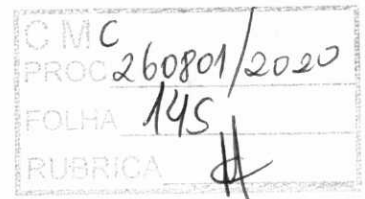 CMC
PROC 260801/2020
FOLHA 145
RUBRICA